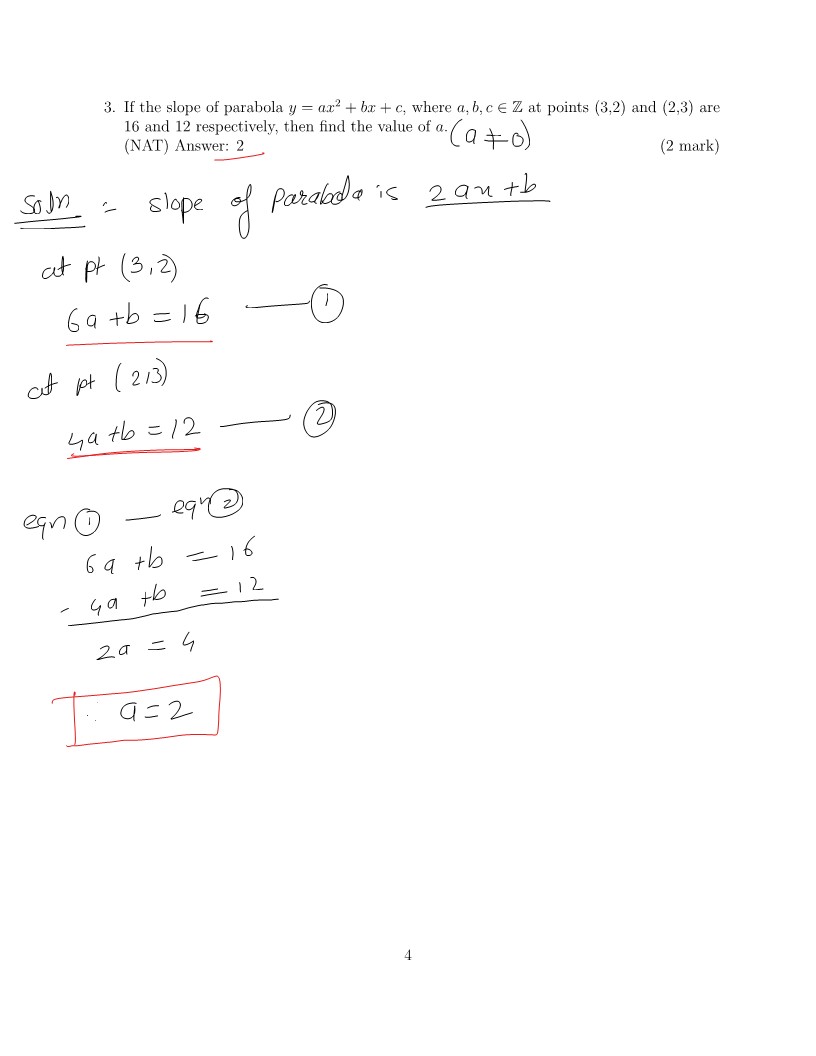 3. If the slope of parabola y = ax² + bx + c, where a, b, c ∈ ℤ at points (3,2) and (2,3) are
16 and 12 respectively, then find the value of a. (a ≠ 0)
(NAT) Answer: 2 (2 mark)
Soln = slope of parabola is 2ax + b
at pt (3,2)
6a + b = 16 — ①
at pt (2,3)
4a + b = 12 — ②
eqn ① — eqn ②
6a + b = 16
- 4a + b = 12
2a = 4
∴ a = 2
4